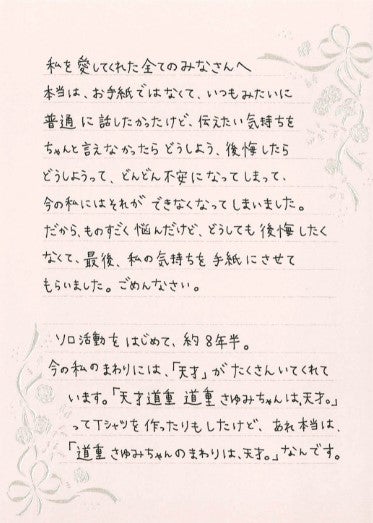 私を愛してくれた全てのみなさんへ
本当は、お手紙ではなくて、いつもみたいに
普通に話したかったけど、伝えたい気持ちを
ちゃんと言えなかったらどうしよう、後悔したら
どうしようって、どんどん不安になってしまって、
今の私にはそれができなくなってしまいました。
だから、ものすごく悩んだけど、どうしても後悔したく
なくて、最後、私の気持ちを手紙にさせて
もらいました。ごめんなさい。
ソロ活動をはじめて、約8年半。
今の私のまわりには、「天才」がたくさんいてくれて
います。「天才道重 道重さゆみちゃんは、天才。」
ってTシャツを作ったりもしたけど、あれ本当は、
「道重さゆみちゃんのまわりは、天才。」なんです。